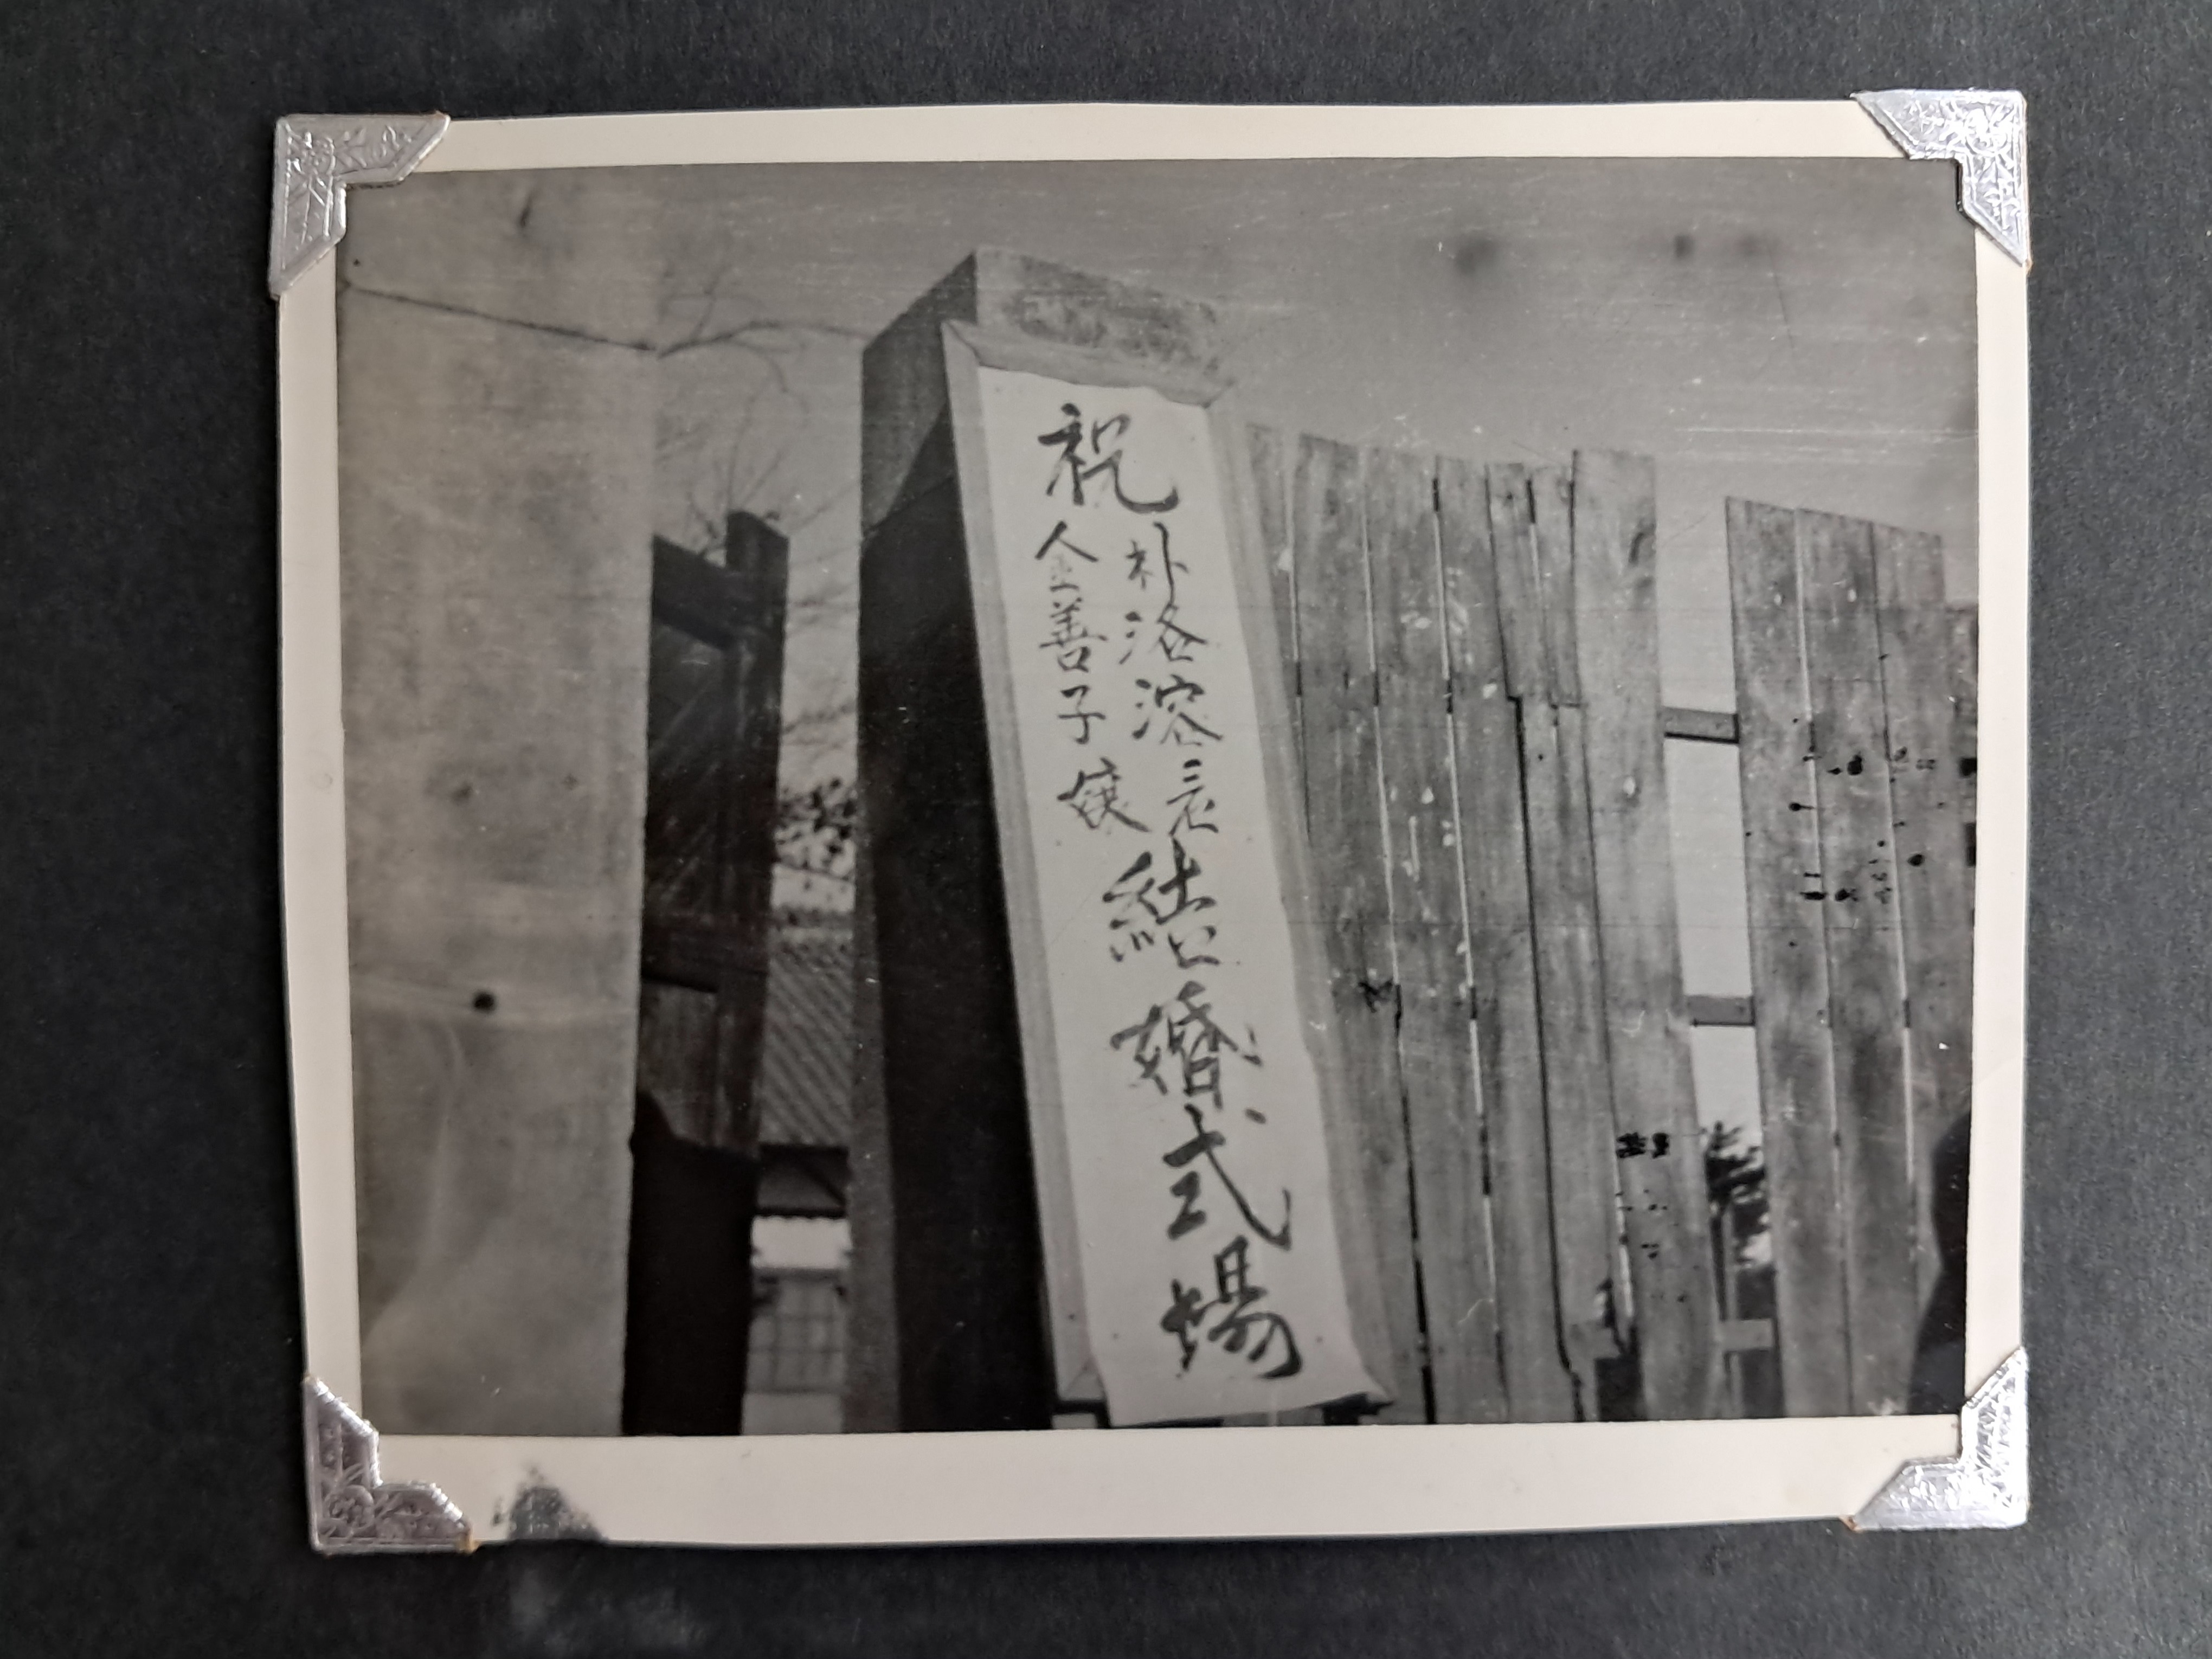 祝
朴洛溶君
金善子孃
結婚式場